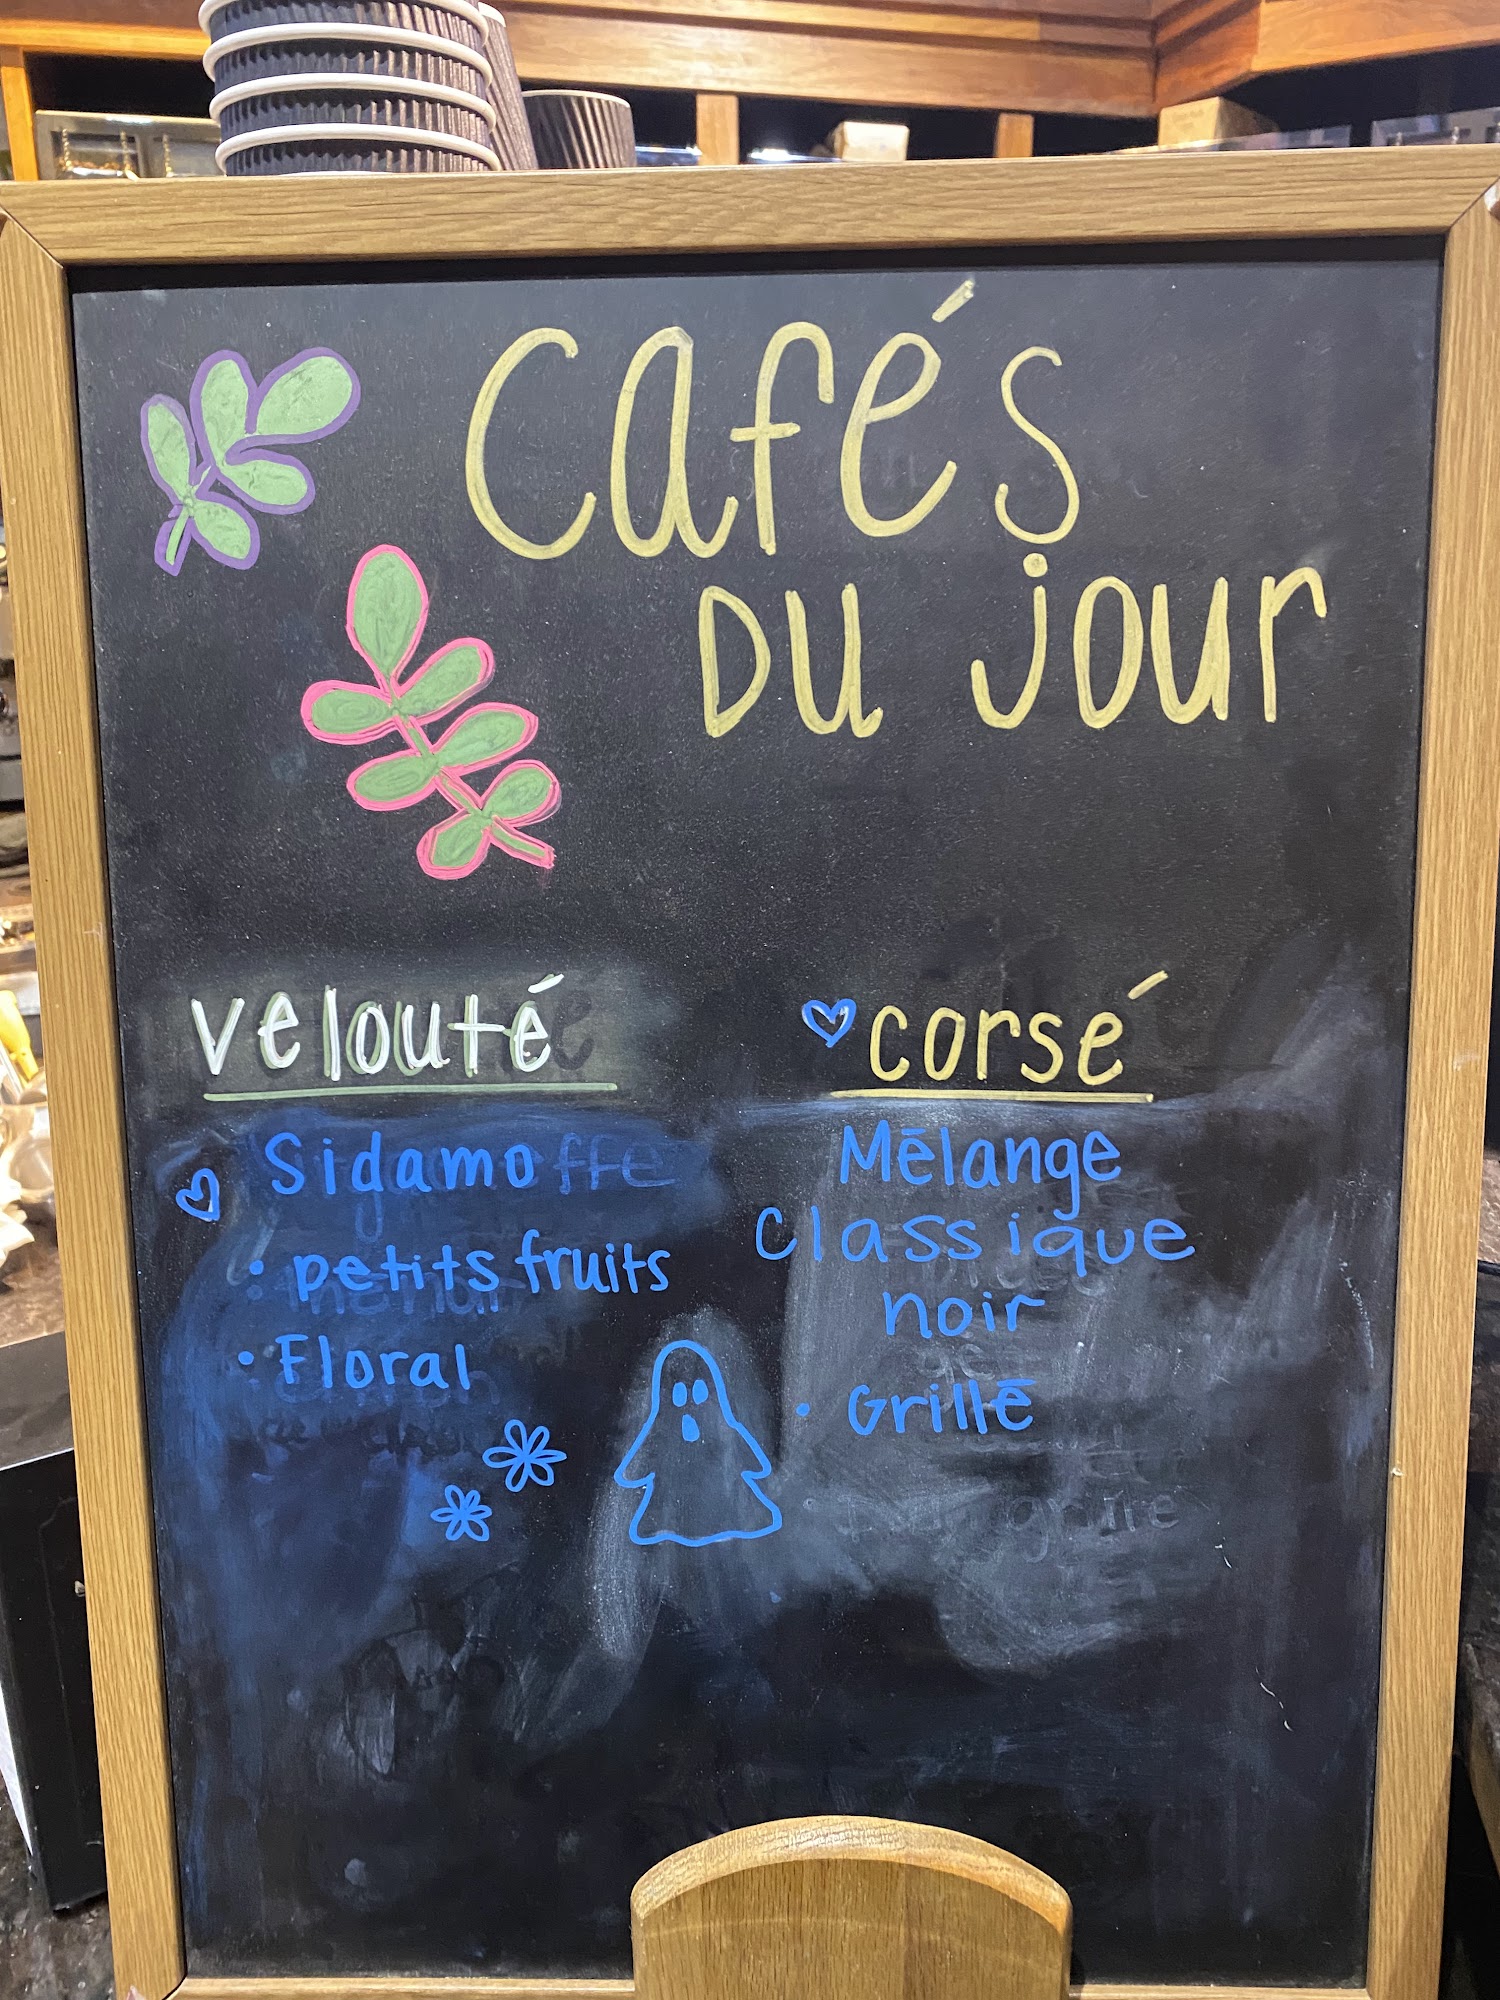 Cafés
DU jour
velouté
Sidamo
• petits fruits
• Floral
corsé
Mélange
Classique
noir
• Grillé